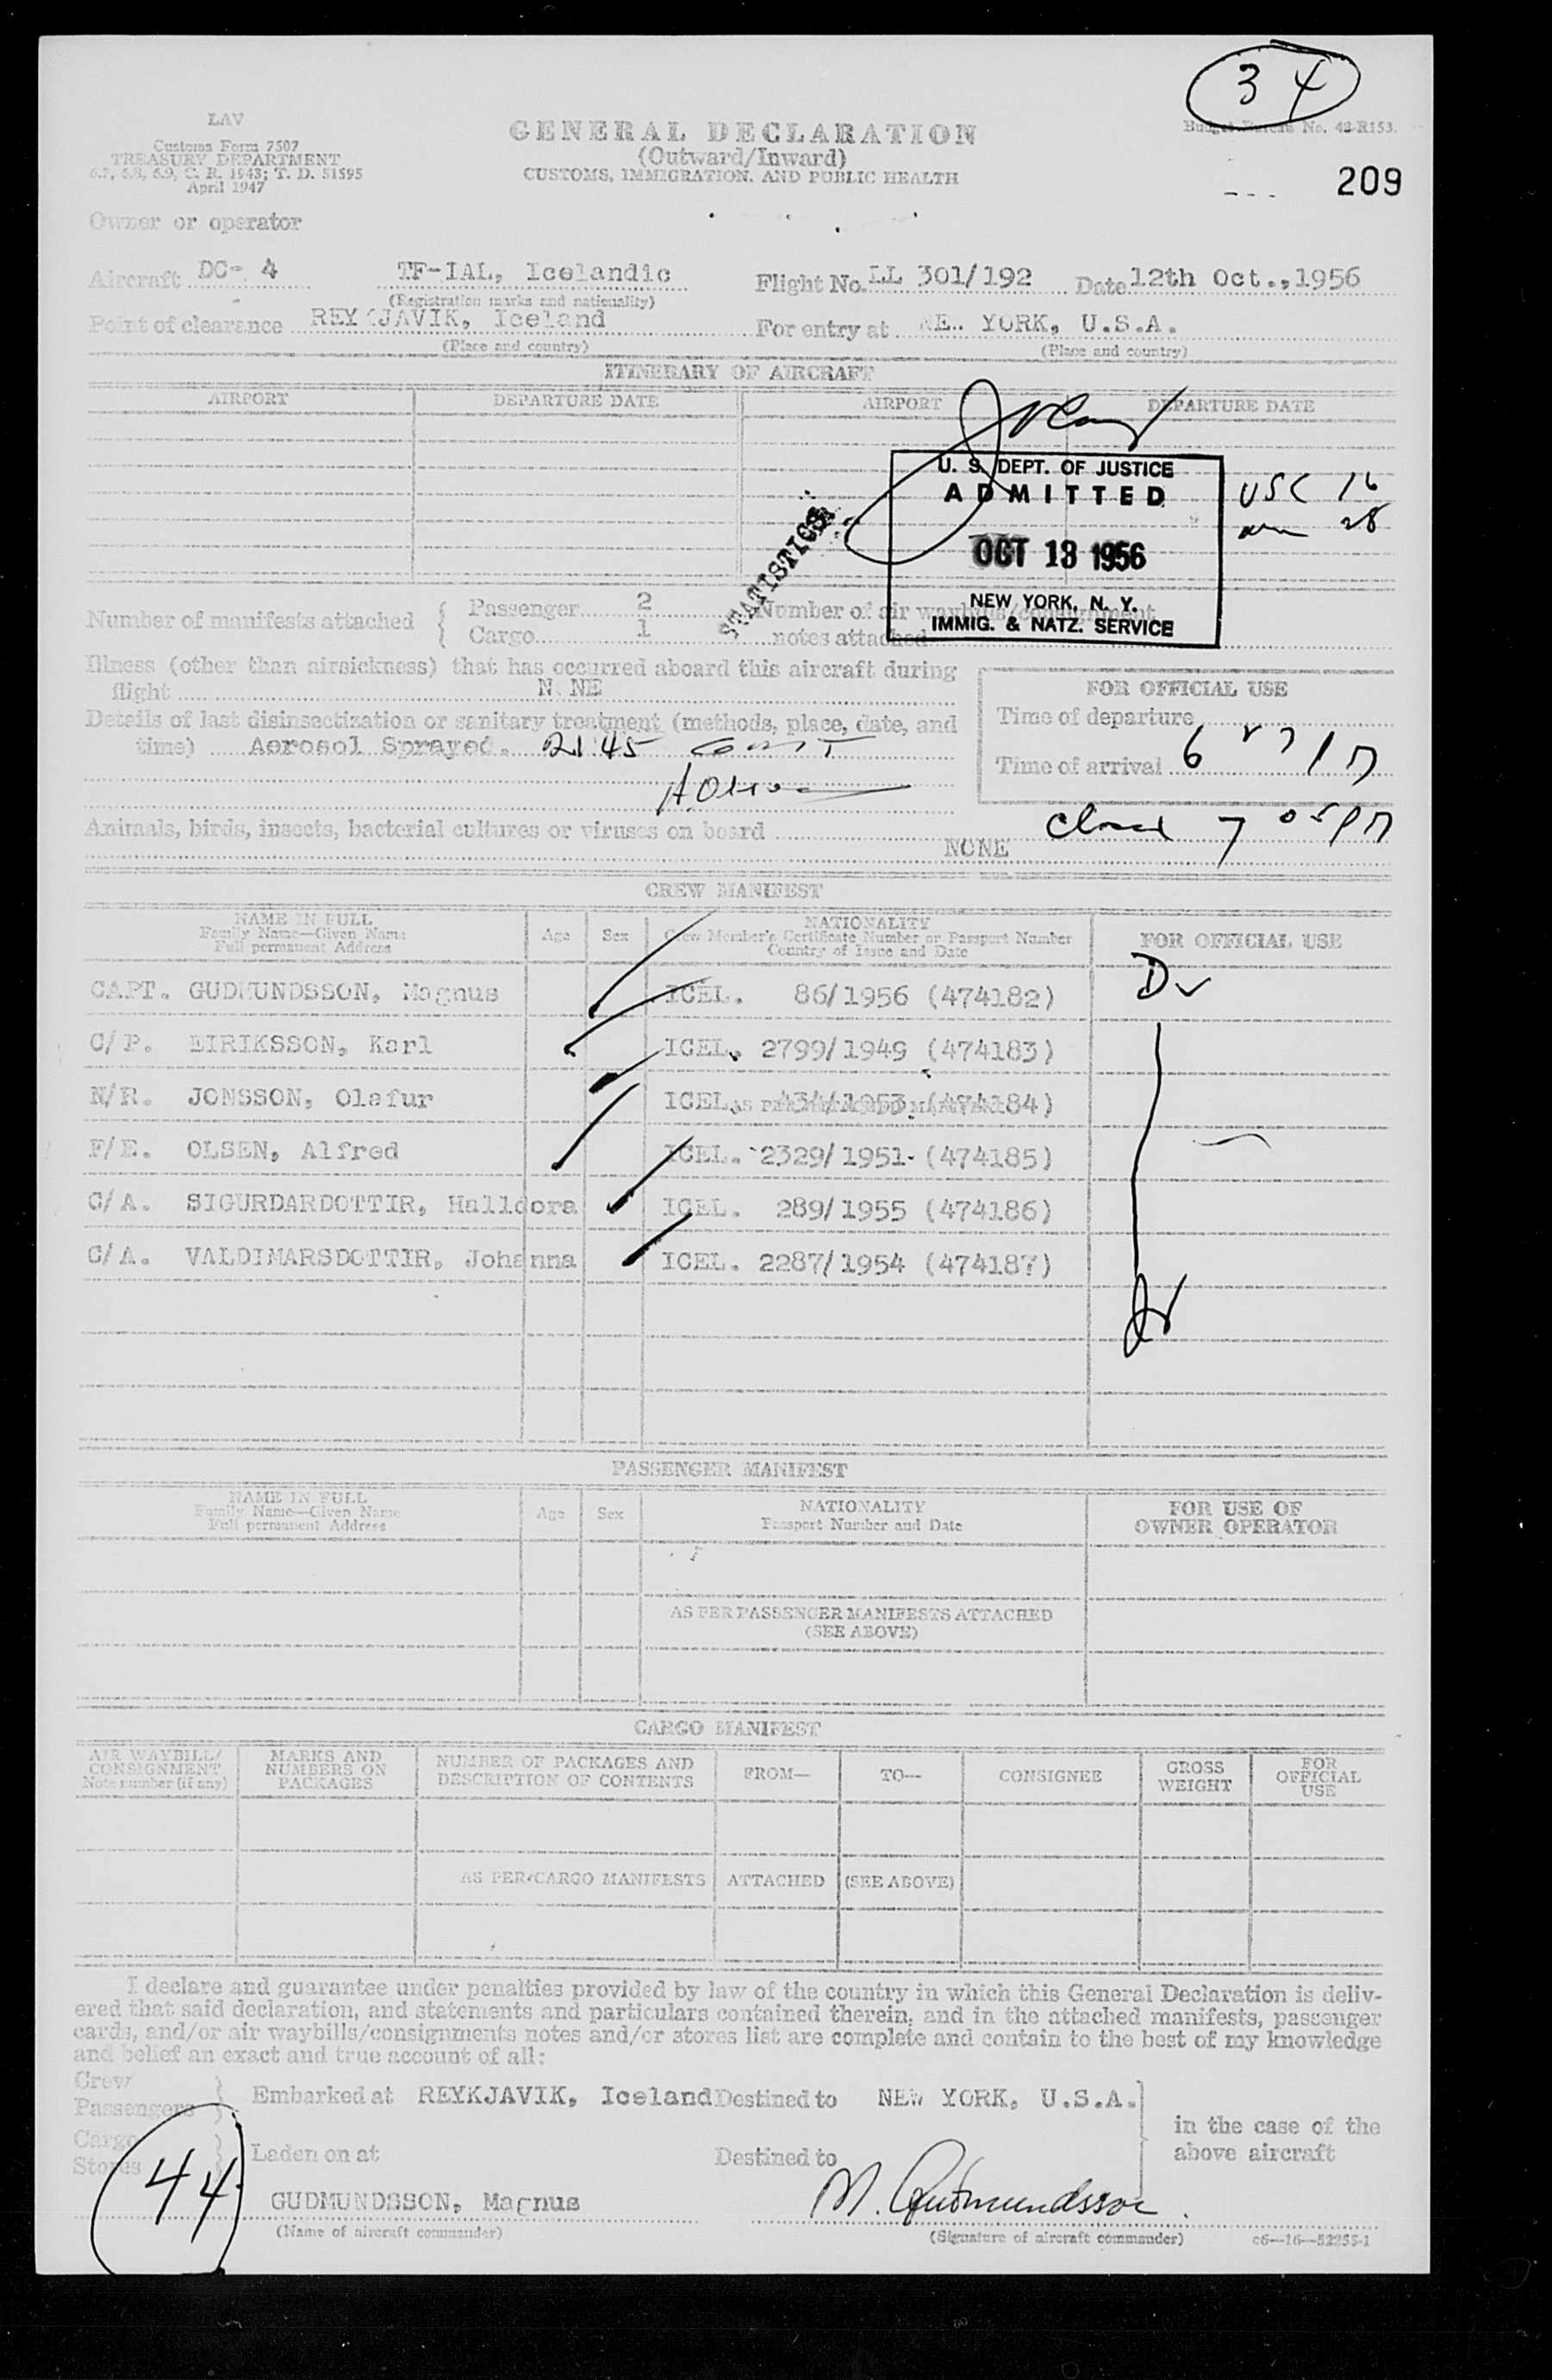 34
LAV
Customs Form 7507
TREASURY DEPARTMENT
6.7, 6.8, 6.9, C. R. 1943; T. D. 51595
April 1947
GENERAL DECLARATION
(Outward/Inward)
CUSTOMS, IMMIGRATION, AND PUBLIC HEALTH
Budget Bureau No. 42-R153.
209
Owner or operator
Aircraft DC- 4 TF-IAL, Icelandic Flight No. LL 301/192 Date 12th Oct., 1956
(Registration marks and nationality)
Point of clearance REYKJAVIK, Iceland For entry at NE. YORK, U.S.A.
(Place and country) (Place and country)
ITINERARY OF AIRCRAFT
AIRPORT DEPARTURE DATE AIRPORT DEPARTURE DATE
U. S. DEPT. OF JUSTICE
ADMITTED
OCT 13 1956
NEW YORK, N. Y.
IMMIG. & NATZ. SERVICE
USC 16
28
STATISTICS
Number of manifests attached { Passenger 2 Number of air waybills/consignment
Cargo 1 notes attached
Illness (other than airsickness) that has occurred aboard this aircraft during
flight N NE
Details of last disinsectization or sanitary treatment (methods, place, date, and
time) Aerosol Sprayed. 21:45 GMT
FOR OFFICIAL USE
Time of departure
Time of arrival 6
Closed 7 05 PM
Animals, birds, insects, bacterial cultures or viruses on board
NONE
CREW MANIFEST
NAME IN FULL
Family Name—Given Name
Full permanent Address
Age Sex
NATIONALITY
Crew Member's Certificate Number or Passport Number
Country of Issue and Date
FOR OFFICIAL USE
CAPT. GUDMUNDSSON, Magnus ICEL. 86/1956 (474182)
C/P. EIRIKSSON, Karl ICEL. 2799/1949 (474183)
N/R. JONSSON, Olafur ICEL. 434/1953 (474184)
F/E. OLSEN, Alfred ICEL. 2329/1951 (474185)
C/A. SIGURDARDOTTIR, Halldora ICEL. 289/1955 (474186)
C/A. VALDIMARSDOTTIR, Johanna ICEL. 2287/1954 (474187)
PASSENGER MANIFEST
NAME IN FULL
Family Name—Given Name
Full permanent Address
Age Sex
NATIONALITY
Passport Number and Date
FOR USE OF
OWNER OPERATOR
AS PER PASSENGER MANIFESTS ATTACHED
(SEE ABOVE)
CARGO MANIFEST
AIR WAYBILL/
CONSIGNMENT
Note number (if any)
MARKS AND
NUMBERS ON
PACKAGES
NUMBER OF PACKAGES AND
DESCRIPTION OF CONTENTS
FROM— TO— CONSIGNEE
GROSS
WEIGHT
FOR
OFFICIAL
USE
AS PER CARGO MANIFESTS ATTACHED (SEE ABOVE)
I declare and guarantee under penalties provided by law of the country in which this General Declaration is deliv-
ered that said declaration, and statements and particulars contained therein, and in the attached manifests, passenger
cards, and/or air waybills/consignments notes and/or stores list are complete and contain to the best of my knowledge
and belief an exact and true account of all:
Crew
Passengers
Embarked at REYKJAVIK, Iceland Destined to NEW YORK, U.S.A.
in the case of the
above aircraft
Cargo
Stores
Laden on at Destined to
44
GUDMUNDSSON, Magnus M. Gudmundsson
(Name of aircraft commander) (Signature of aircraft commander) c6—16—52255-1